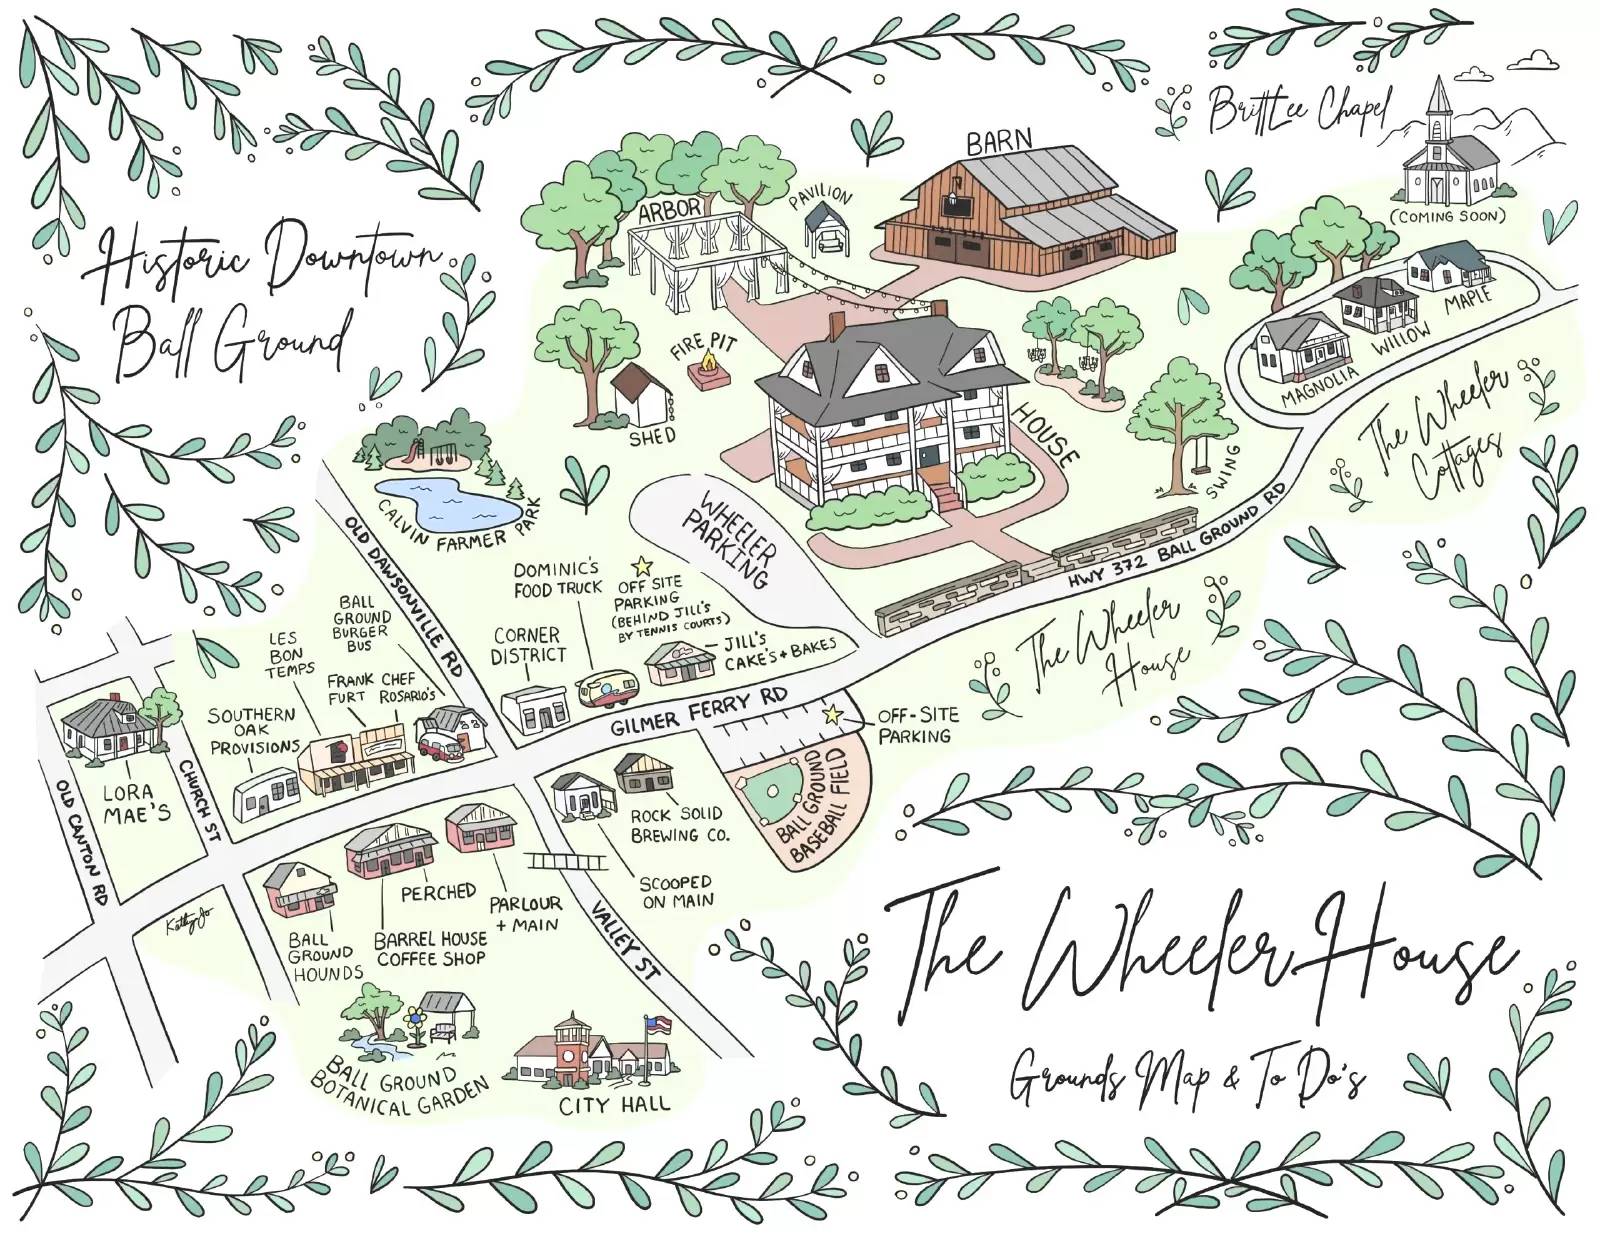 BrittLee Chapel
(COMING SOON)
BARN
PAVILION
ARBOR
Historic Downtown
Ball Ground
MAPLE
WILLOW
MAGNOLIA
The Wheeler
Cottages
FIRE PIT
SHED
HOUSE
SWING
CALVIN FARMER PARK
WHEELER
PARKING
HWY 372 BALL GROUND RD
The Wheeler
House
OLD DAWSONVILLE RD
DOMINIC'S
FOOD TRUCK
OFF SITE
PARKING
(BEHIND JILL'S
BY TENNIS COURTS)
JILL'S
CAKE'S + BAKES
CORNER
DISTRICT
BALL
GROUND
BURGER
BUS
LES
BON
TEMPS
FRANK
FURT
CHEF
ROSARIO'S
SOUTHERN
OAK
PROVISIONS
GILMER FERRY RD
OFF-SITE
PARKING
BALL GROUND
BASEBALL FIELD
LORA
MAE'S
CHURCH ST
OLD CANTON RD
ROCK SOLID
BREWING CO.
SCOOPED
ON MAIN
PERCHED
PARLOUR
+ MAIN
BARREL HOUSE
COFFEE SHOP
BALL
GROUND
HOUNDS
VALLEY ST
Kathy Jo
BALL GROUND
BOTANICAL GARDEN
CITY HALL
The Wheeler House
Grounds Map & To Do's